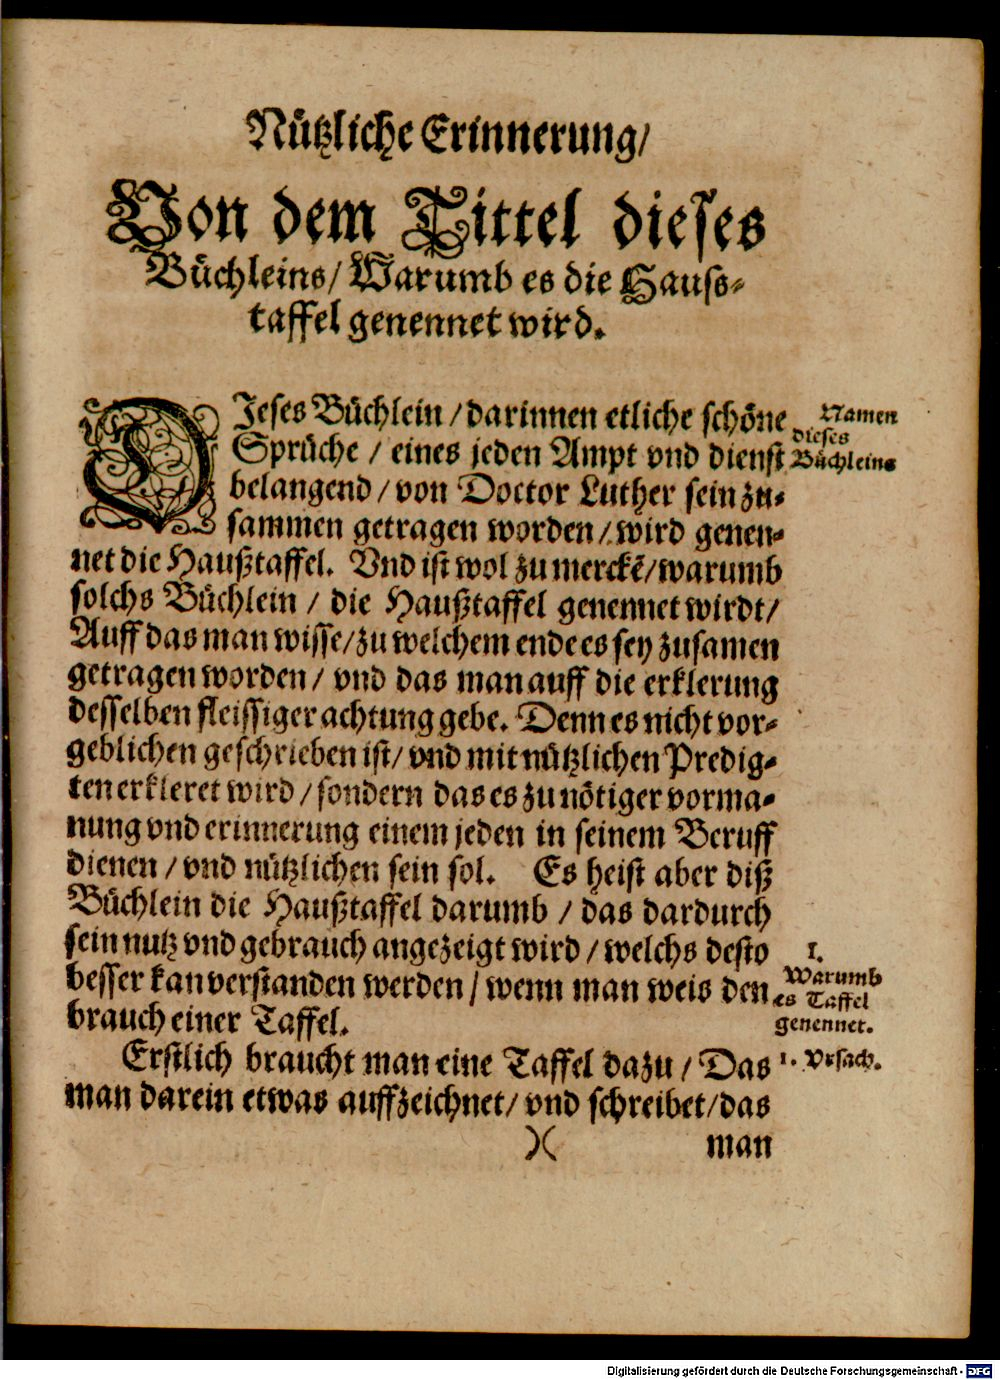 Nützliche Erinnerung/
Von dem Tittel dieses
Büchleins/ Warumb es die Hauss-
taffel genennet wird.
DIeses Büchlein / darinnen etliche schöne
Sprüche / eines jeden Ampt vnd dienst
belangend / von Doctor Luther sein zu-
sammen getragen worden / wird genen-
net die Haußtaffel. Vnd ist wol zu merckē/ warumb
solchs Büchlein / die Haußtaffel genennet wirdt/
Auff das man wisse/ zu welchem ende es sey zusamen
getragen worden / vnd das man auff die erklerung
desselben fleissiger achtung gebe. Denn es nicht vor-
geblichen geschrieben ist/ vnd mit nützlichen Predig-
ten erkleret wird / sondern das es zu nötiger vorma-
nung vnd erinnerung einem jeden in seinem Beruff
dienen / vnd nützlichen sein sol. Es heist aber diß
Büchlein die Haußtaffel darumb / das dardurch
sein nutz vnd gebrauch angezeigt wird / welchs desto
besser kan verstanden werden / wenn man weis den
brauch einer Taffel.
Erstlich braucht man eine Taffel dazu / Das
man darein etwas auffzeichnet/ vnd schreibet/ das
)( man
Namen
dieses
Büchleins
1.
Warumb
es Taffel
genennet.
1. Vrsach.
Digitalisierung gefördert durch die Deutsche Forschungsgemeinschaft - DFG